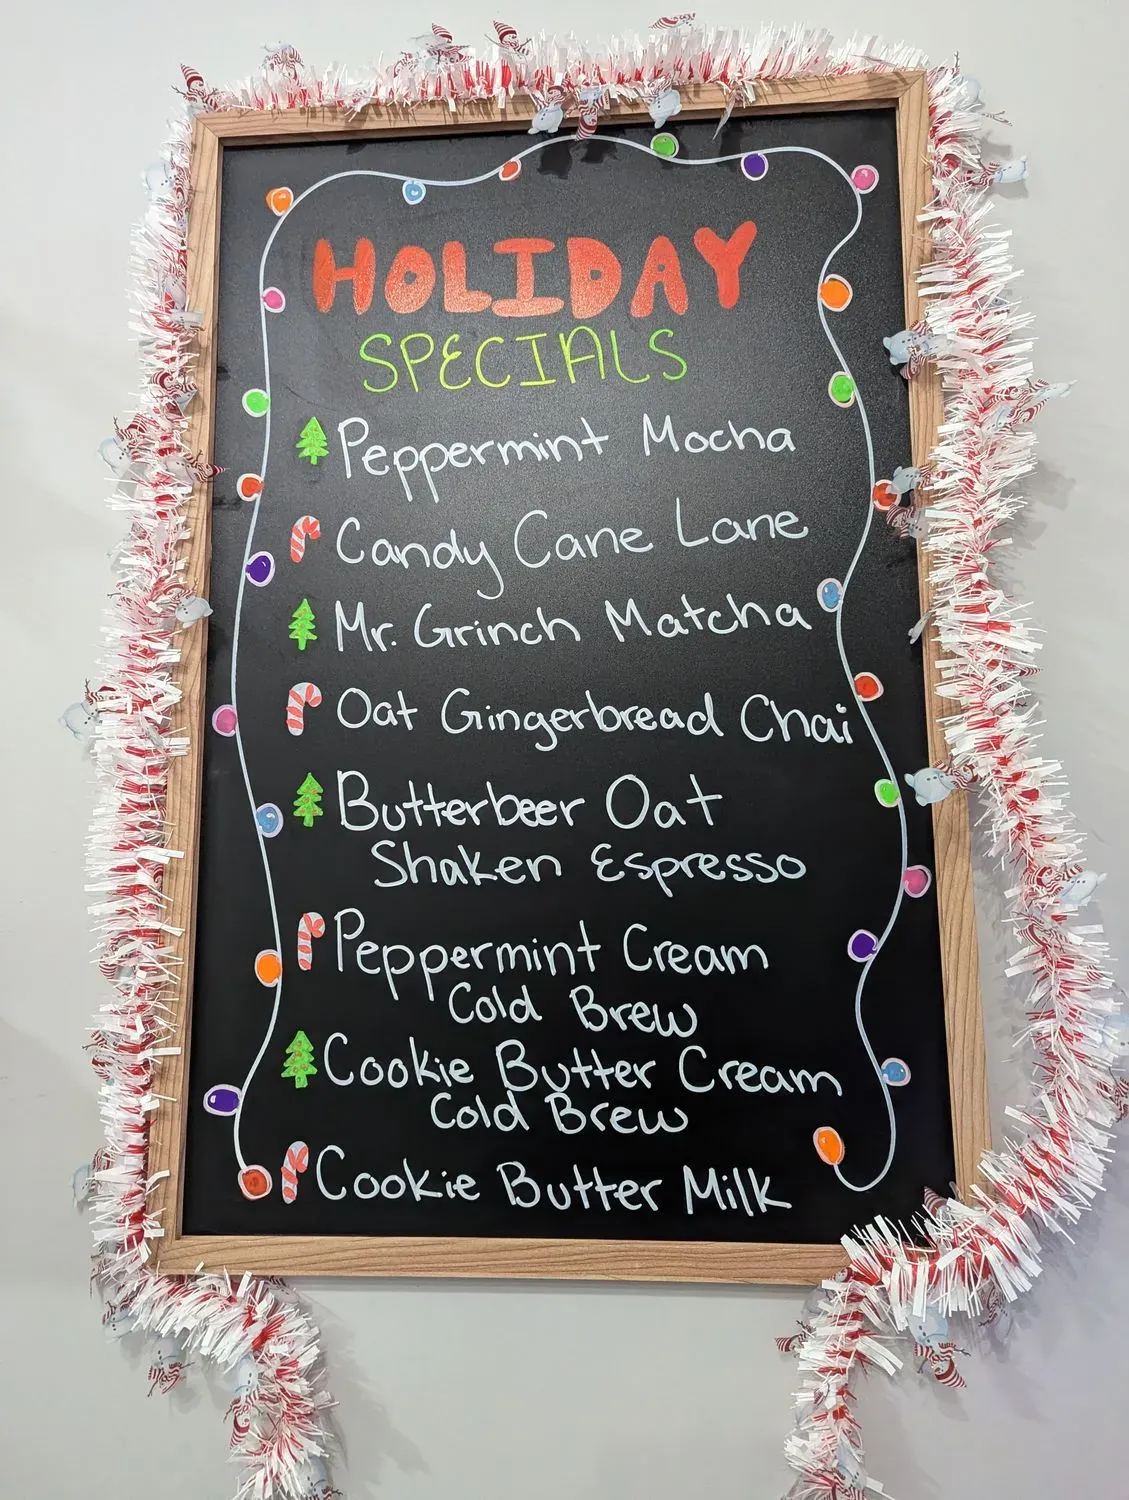 HOLIDAY
SPECIALS
Peppermint Mocha
Candy Cane Lane
Mr. Grinch Matcha
Oat Gingerbread Chai
Butterbeer Oat
Shaken Espresso
Peppermint Cream
Cold Brew
Cookie Butter Cream
Cold Brew
Cookie Butter Milk